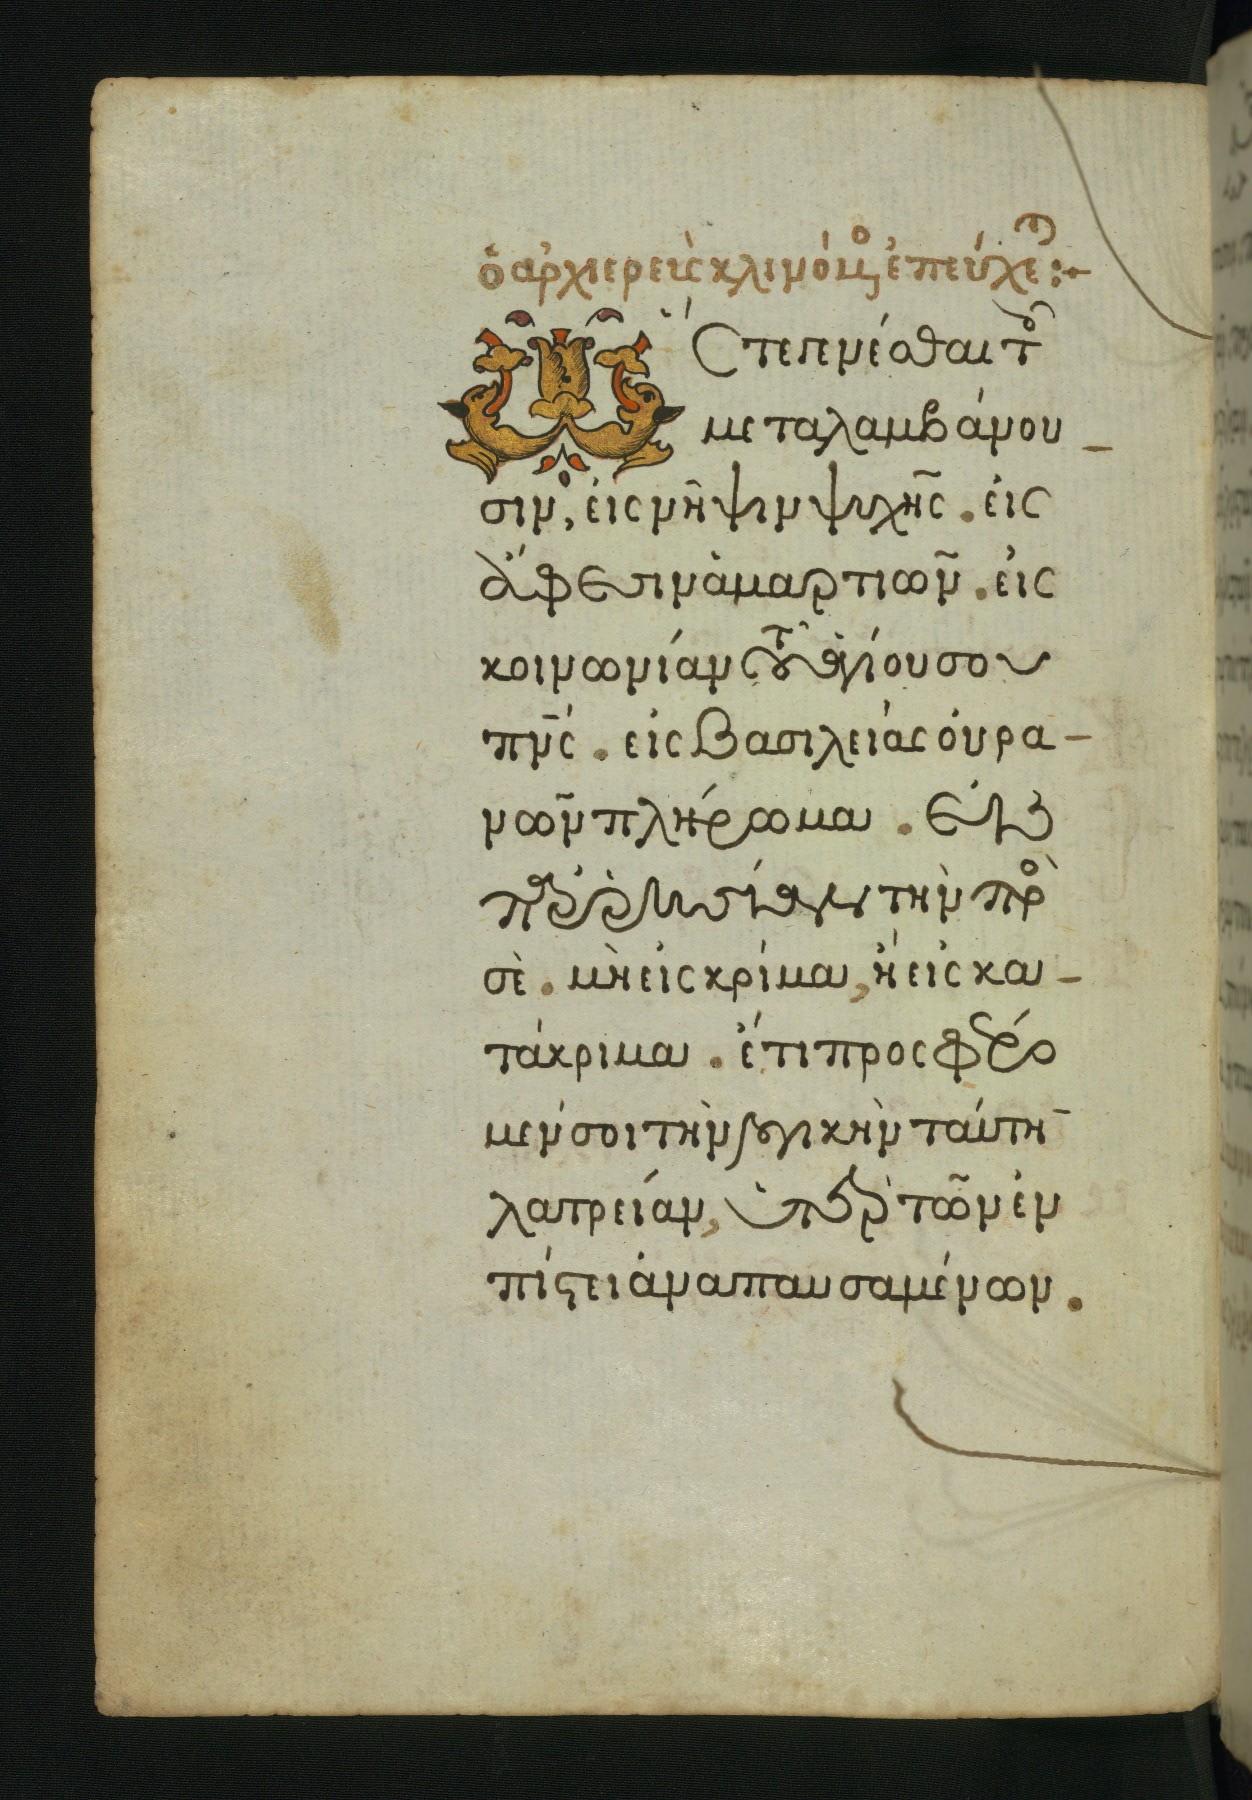 ὁ ἀρχιερεὺς κλινόμενος ἐπεύχεται :
Ὥστε γενέσθαι τοῖς
μεταλαμβάνου
σιν, εἰς νῆψιν ψυχῆς . εἰς
ἄφεσιν ἁμαρτιῶν . εἰς
κοινωνίαν τοῦ ἁγίου σου
πνς . εἰς βασιλείας οὐρα
νῶν πλήρωμα . εἰς
παρρησίαν τὴν πρὸς
σὲ . μὴ εἰς κρίμα, ἢ εἰς κα
τάκριμα . ἔτι προσφέρο
μεν σοι τὴν λογικὴν ταύτην
λατρείαν, ὑπὲρ τῶν ἐν
πίστει ἀναπαυσαμένων .